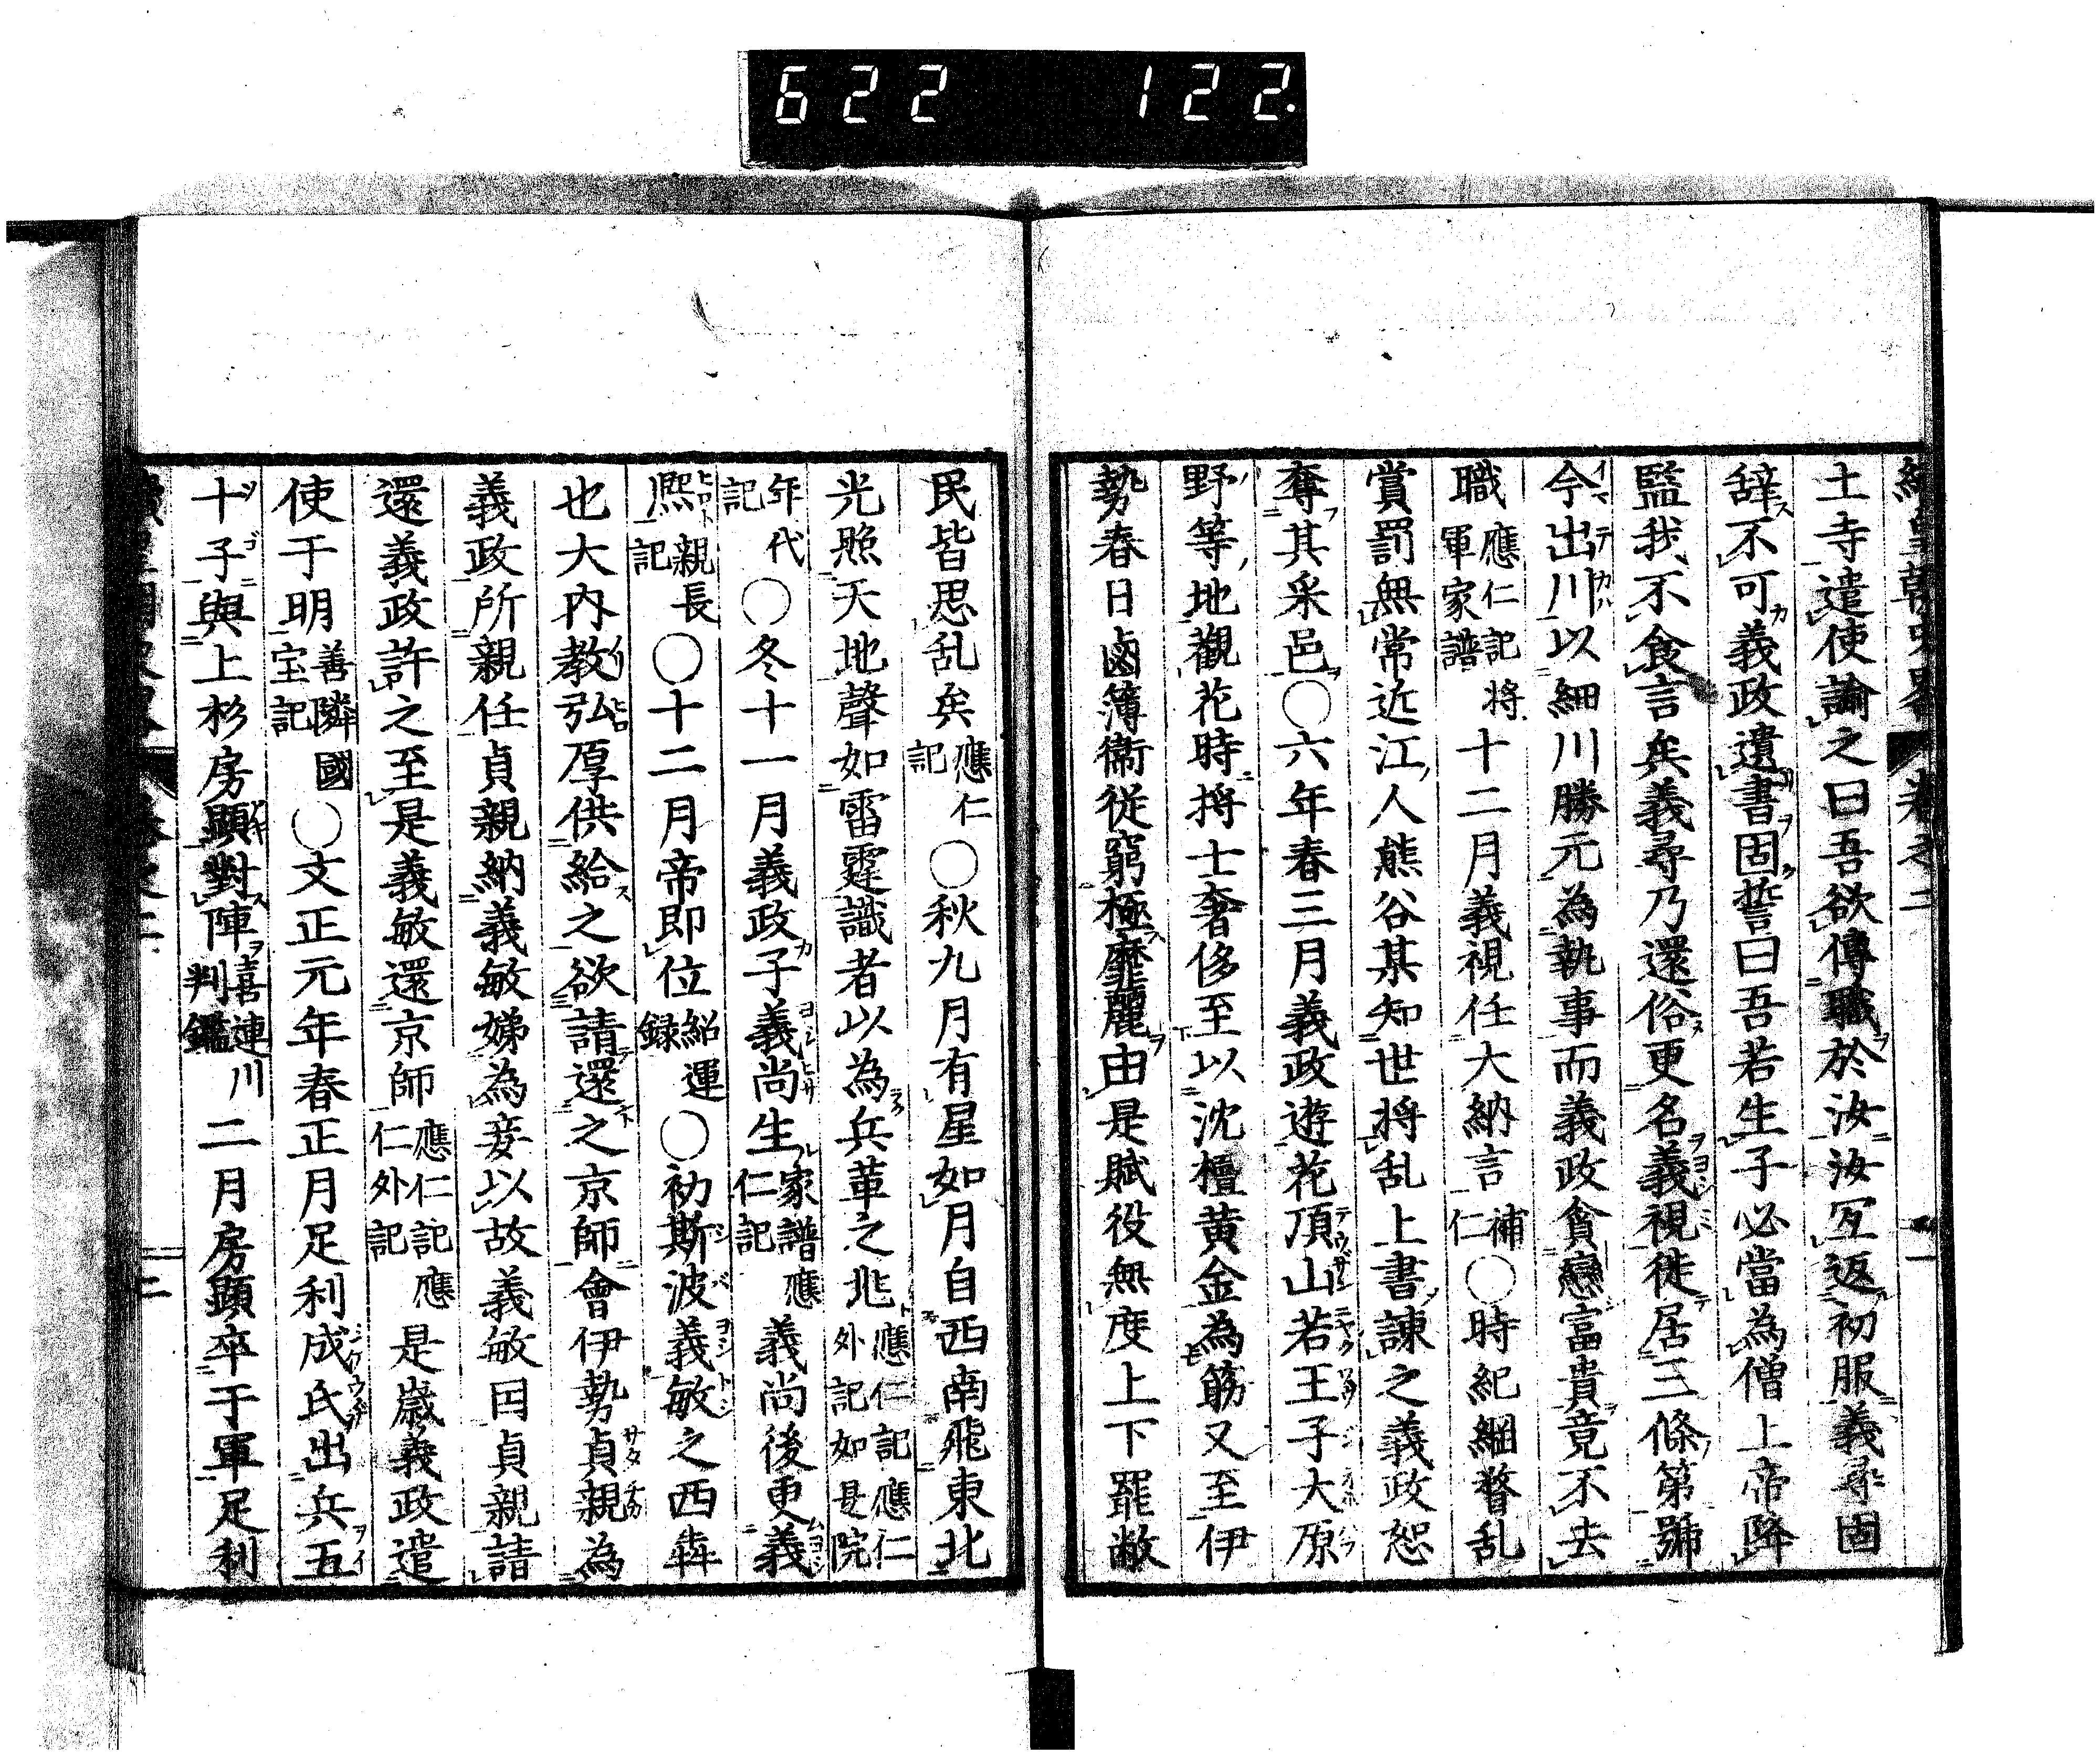 622 122.
土寺遣使諭之曰吾欲傳職於汝汝冝返初服義尋固
辞不可義政遺書固誓曰吾若生子必當為僧上帝降
監我不食言矣義尋乃還俗更名義視徙居三條第號
今出川以細川勝元為執事而義政貪戀富貴竟不去
職應仁記将軍家譜十二月義視任大納言補仁○時紀綱瞀乱
賞罰無常近江人熊谷某知世将乱上書諌之義政怒
奪其采邑○六年春三月義政遊花頂山若王子大原
野等地觀花時将士奢侈至以沈檀黄金為筯又至伊
勢春日鹵簿衞従窮極靡麗由是賦役無度上下罷敝
民皆思乱矣應仁記○秋九月有星如月自西南飛東北
光照天地聲如雷霆識者以為兵革之兆應仁記應仁外記如是院
年代記○冬十一月義政子義尚生家譜應仁記義尚後更義
煕親長記○十二月帝即位紹運録○初斯波義敏之西犇
也大内教弘厚供給之欲請還之京師會伊勢貞親為
義政所親任貞親納義敏娣為妾以故義敏因貞親請
還義政許之至是義敏還京師應仁記應仁外記是歳義政遣
使于明善隣國宝記○文正元年春正月足利成氏出兵五
十子與上杉房顕對陣喜連川判鑑二月房顕卒于軍足利